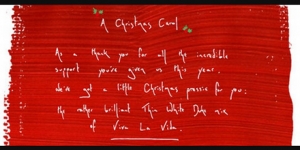 A Christmas Carol
As a thank you for all the incredible
support you've given us this year,
we've got a little Christmas pressie for you:
the rather brilliant Thin White Duke mix
of Viva La Vida.